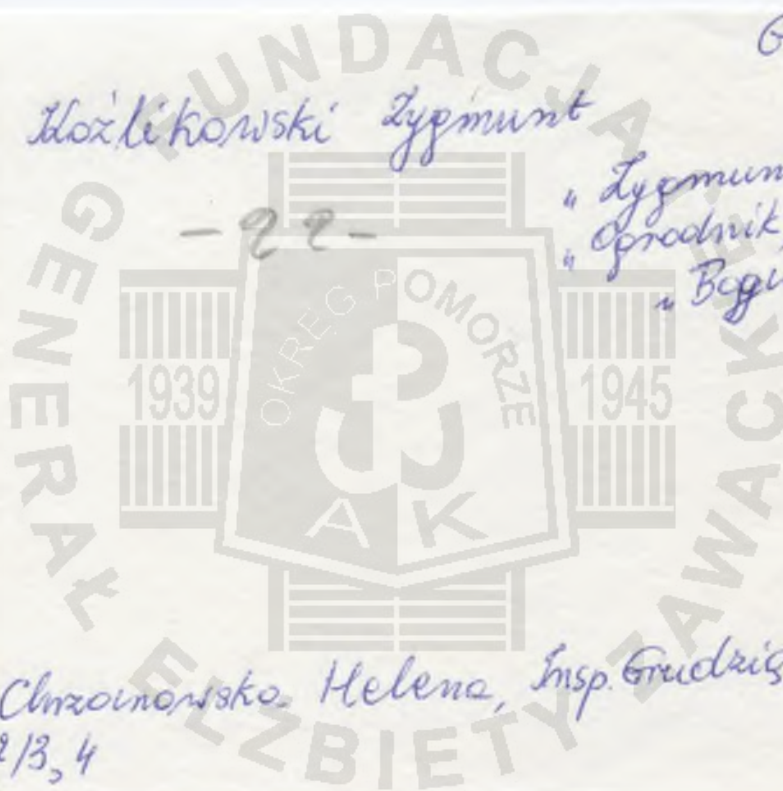 G
Koźlikowski Zygmunt
„Zygmun
- 22 -
„Ogrodnik
„Bogu
Chrzanowska Helena, Insp. Grudzią
2/3, 4
FUNDACJA
GENERAŁ ELŻBIETY ZAWACKIEJ
OKRĘG POMORZE
1939
1945
AK